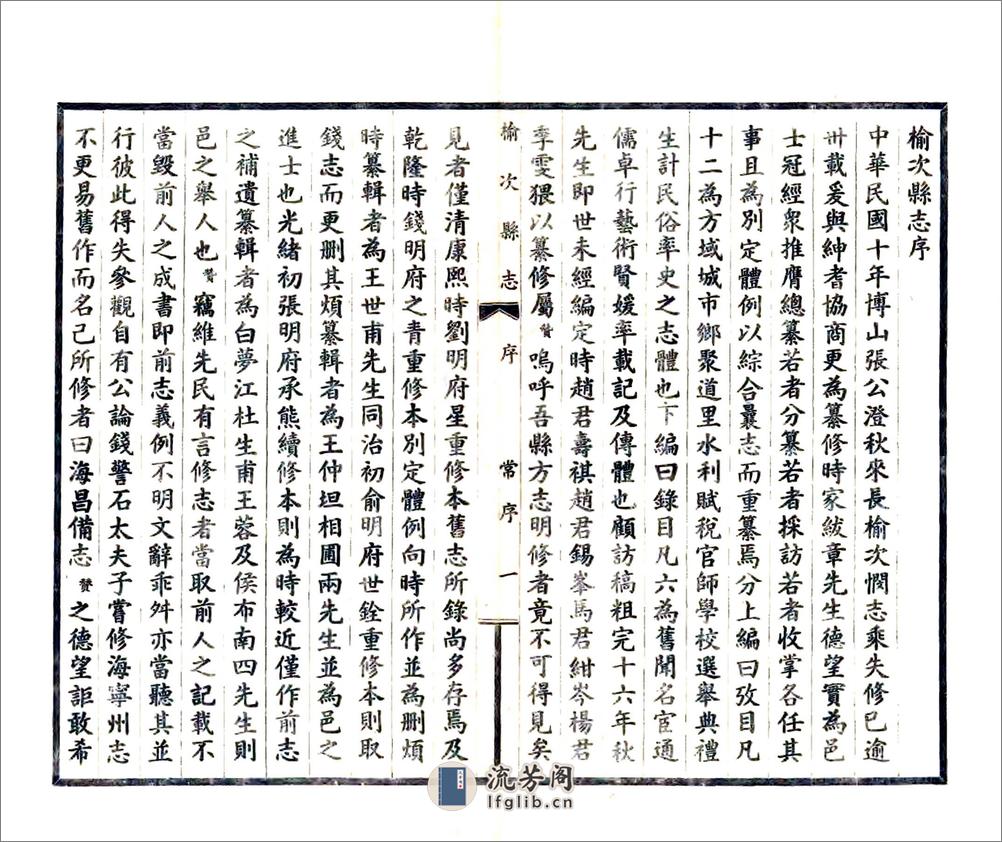 榆次縣志序
中華民國十年博山張公澄秋來長榆次憫志乘失修已逾
卅載爰與紳耆協商更為纂修時家紱章先生德望實為邑
士冠經衆推膺總纂若者分纂若者採訪若者收掌各任其
事且為別定體例以綜合曩志而重纂焉分上編曰攷目凡
十二為方域城市鄉聚道里水利賦稅官師學校選舉典禮
生計民俗率史之志體也下編曰錄目凡六為舊聞名宦通
儒卓行藝術賢媛率載記及傳體也顧訪稿粗完十六年秋
先生即世未經編定時趙君壽祺趙君錫峯馬君紺岑楊君
季雯猥以纂修屬贊嗚呼吾縣方志明修者竟不可得見矣
榆次縣志 序 常序 一
見者僅清康熙時劉明府星重修本舊志所錄尚多存焉及
乾隆時錢明府之青重修本別定體例向時所作並為删煩
時纂輯者為王世甫先生同治初俞明府世銓重修本則取
錢志而更删其煩纂輯者為王仲坦相圃兩先生並為邑之
進士也光緒初張明府承熊續修本則為時較近僅作前志
之補遺纂輯者為白夢江杜生甫王蓉及侯布南四先生則
邑之舉人也贊竊維先民有言修志者當取前人之記載不
當毀前人之成書即前志義例不明文辭乖舛亦當聽其並
行彼此得失參觀自有公論錢警石太夫子嘗修海寧州志
不更易舊作而名己所修者曰海昌備志贊之德望詎敢希
流芳阁
lfglib.cn